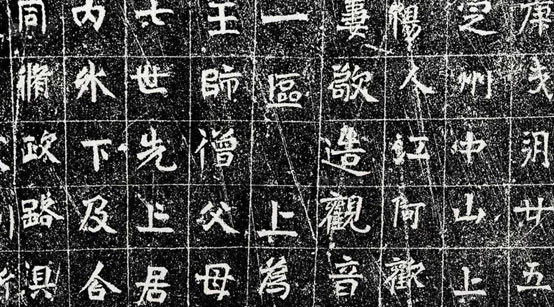 庚戌朔廿五
定州中山上
楊人江阿歡
妻歌造觀音
一區上為
王師僧父母
七世先亡居
內外下及含
同脩政路俱